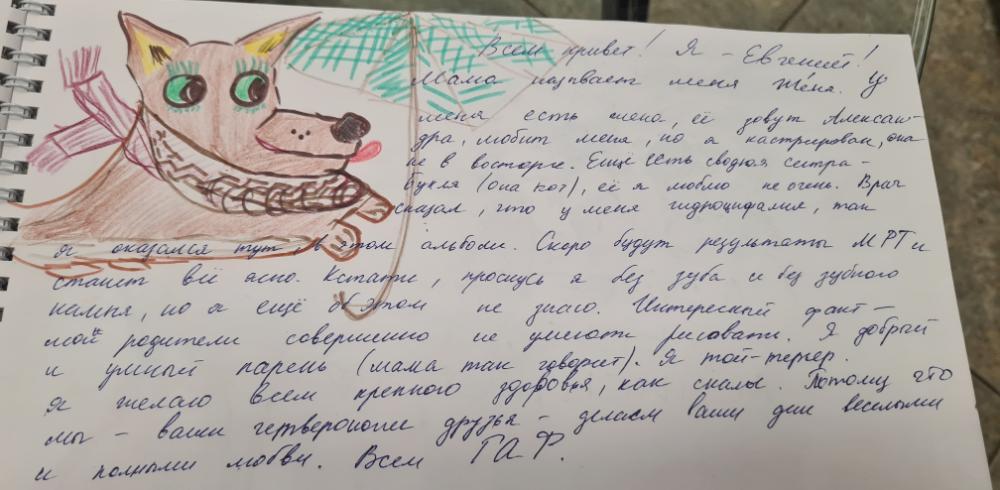 Всем привет! Я - Евгений!
Мама называет меня Женя. У
меня есть жена, её зовут Алексан-
дра, любит меня, но я кастрирован, она
не в восторге. Ещё есть сводная сестра -
букля (она кот), её я люблю не очень. Врач
сказал, что у меня гидроцифалия, так
я оказался тут, в этом альбоме. Скоро будут результаты МРТ и
станет всё ясно. Кстати, проснусь я без зуба и без зубного
камня, но я ещё об этом не знаю. Интересный факт -
мои родители совершенно не умеют рисовать. Я добрый
и умный парень (мама так говорит). Я той-терьер.
Я желаю всем крепкого здоровья, как скалы. Потому что
мы - ваши четвероногие друзья - делаем ваши дни веселыми
и полными любви. Всем ГАФ.